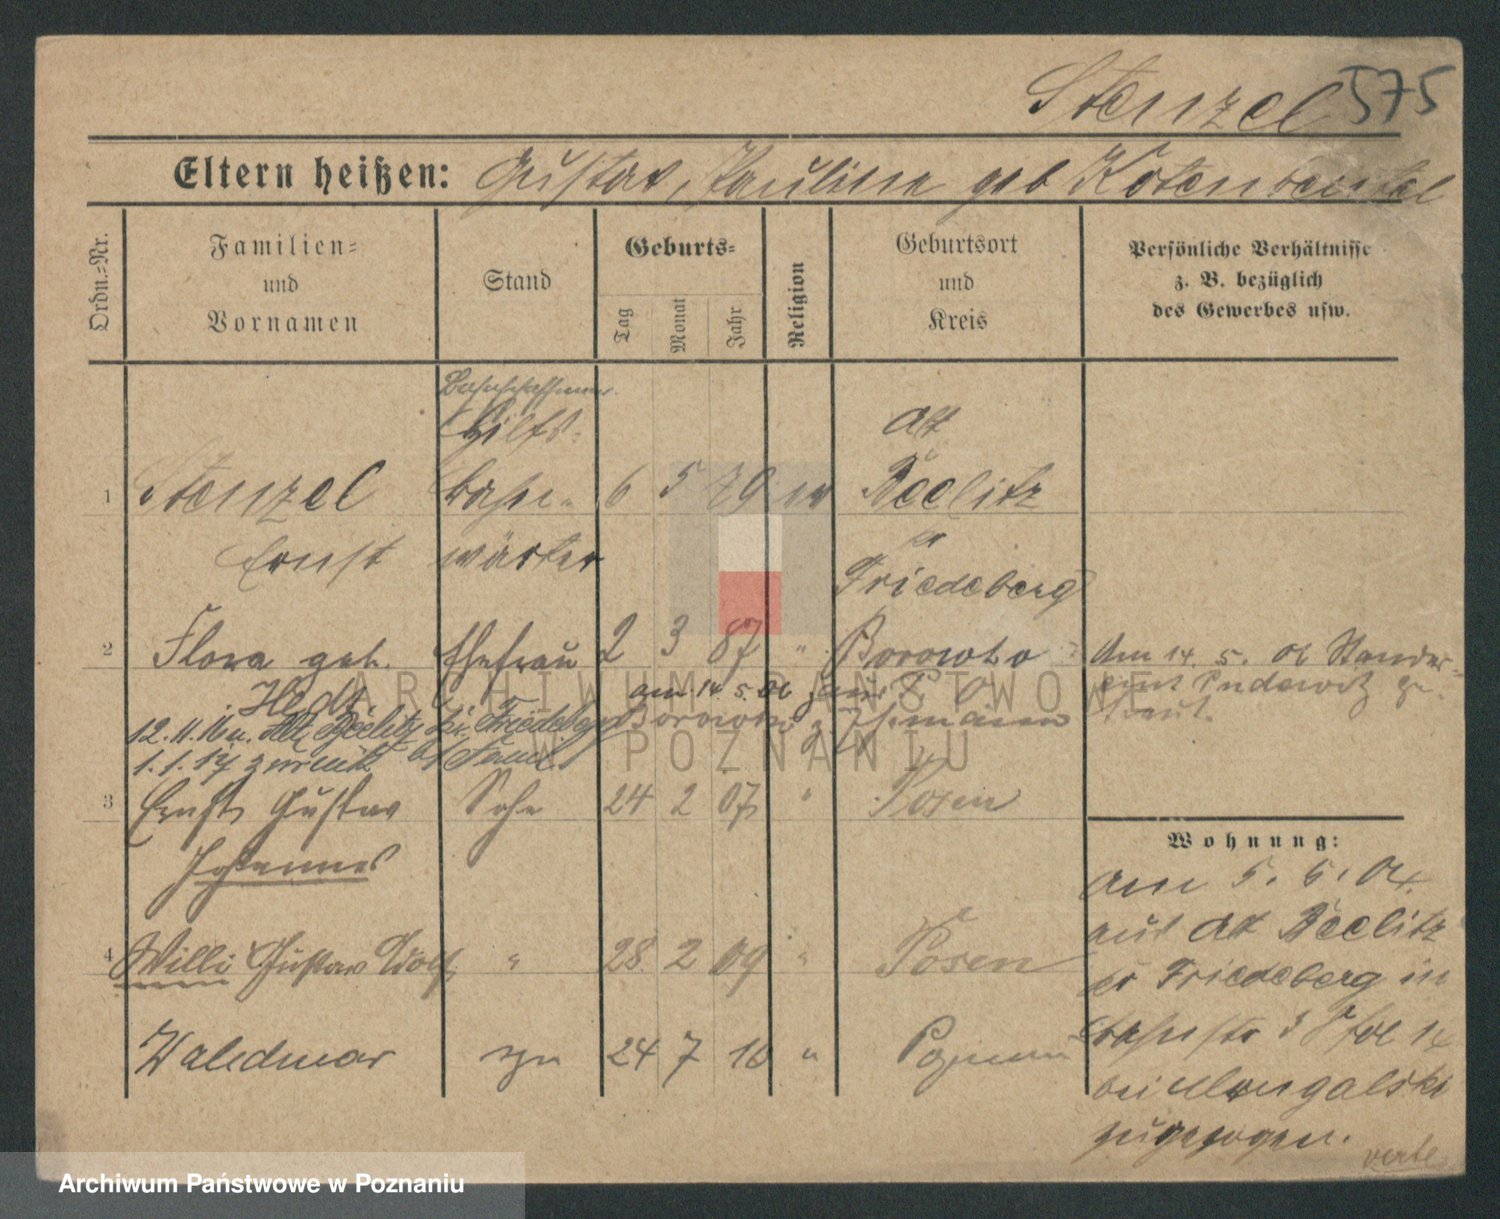 Stenzel 575
Eltern heißen: Gustav, Pauline geb Kotenbeutel
Ordn.-Nr.
Familien-
und
Vornamen
Stand
Geburts-
Tag
Monat
Jahr
Religion
Geburtsort
und
Kreis
Persönliche Verhältnisse
z. B. bezüglich
des Gewerbes usw.
Bahnschaffner
Hilfs-
Alt
1 Stenzel bahn- 6 5 79 ev Beelitz
Ernst wärter Kr
Friedeberg
2 Flora geb. Ehefrau 2 3 87 " Borowko
Am 14. 5. 06 Standes-
amt Pudewitz ge-
traut.
Hedt. am 14. 5. 06
12.11.16 n. Alt Beelitz Kr. Friedeberg Borowko
1.1.17 zurück Fam.
3 Ernst Gustav Sohn 24 2 07 " Posen
Johannes
4 Willi Gustav Adolf " 28 2 09 " Posen
Waldemar 24 7 16 "
Wohnung:
Am 5. 6. 04
aus Alt Beelitz
Kr Friedeberg in
bei
zugezogen.
verte
ARCHIWUM PAŃSTWOWE
W POZNANIU
Archiwum Państwowe w Poznaniu